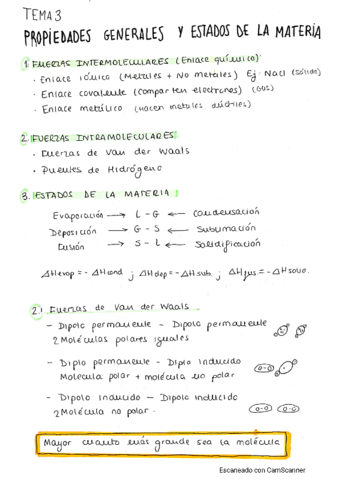 TEMA 3
PROPIEDADES GENERALES Y ESTADOS DE LA MATERIA
1. FUERZAS INTERMOLECULARES (Enlace químico):
· Enlace iónico (Metales + No metales) Ej: NaCl (sólido)
· Enlace covalente (comparten electrones) (GAS)
· Enlace metálico (Hacen metales dúctiles)
2. FUERZAS INTRAMOLECULARES:
· Fuerzas de Van der Waals
· Puentes de Hidrógeno
3. ESTADOS DE LA MATERIA:
Evaporación → L - G ← Condensación
Deposición → G - S ← Sublimación
Fusión → S - L ← Solidificación
ΔHevap = - ΔHcond ; ΔHdep = - ΔHsub ; ΔHfus = - ΔHsolid.
2.1 Fuerzas de Van der Waals
- Dipolo permanente - Dipolo permanente
2 Moléculas polares iguales
- Diplo permanente - Diplo inducido
Molécula polar + molécula no polar
- Dipolo inducido - Dipolo inducido
2 Molécula no polar.
Mayor cuanto más grande sea la molécula
Escaneado con CamScanner